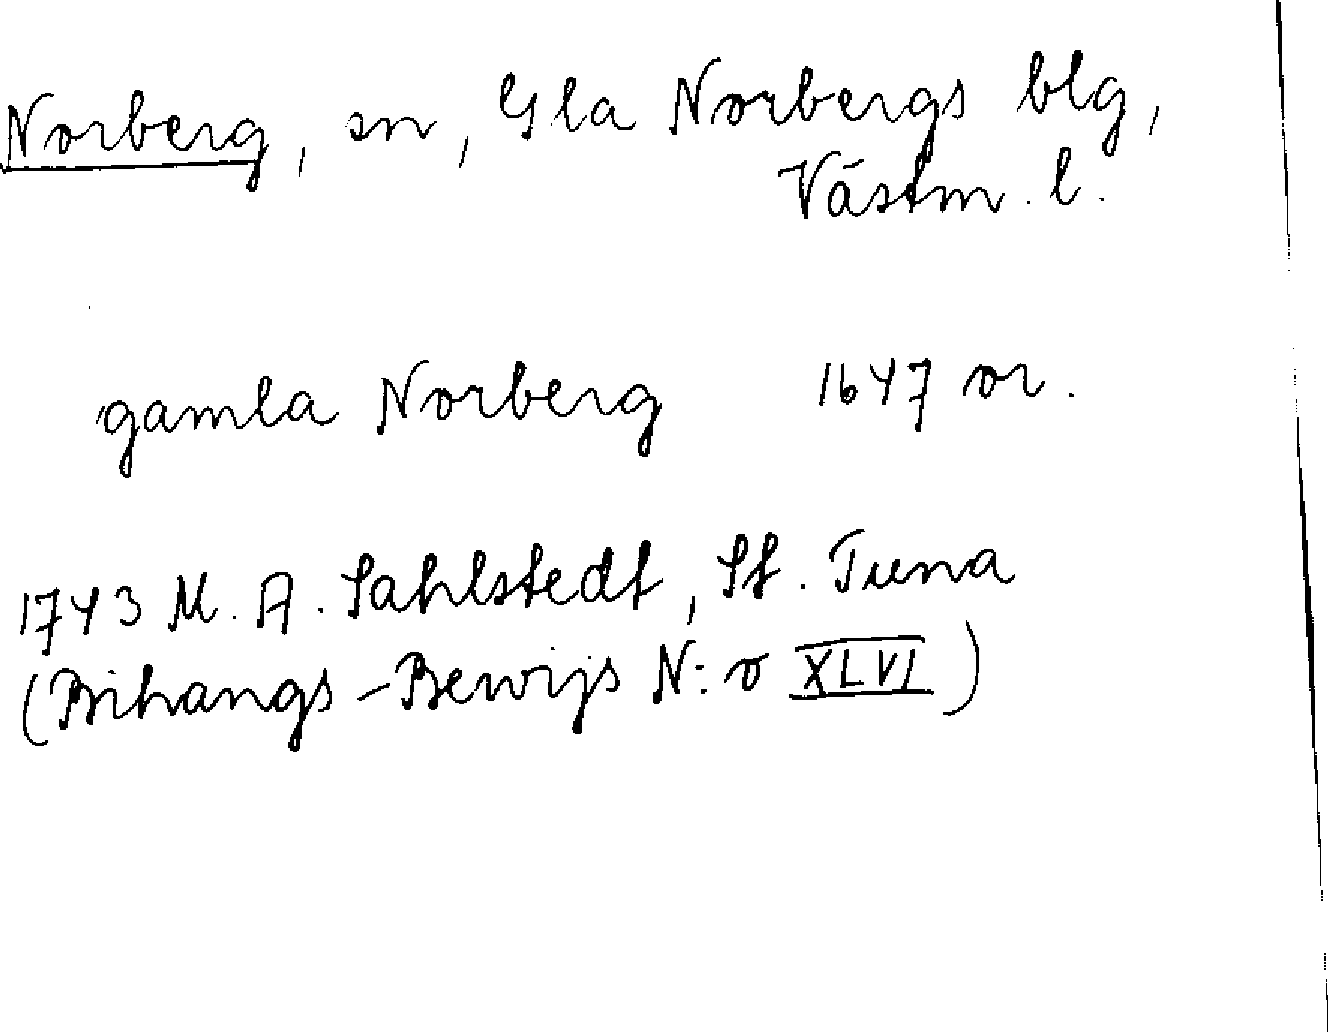 Norberg, sn, Gla Norbergs blg,
Västm. l.
gamla Norberg 1647 or.
1743 M. A. Sahlstedt, St. Tuna
(Bihangs-Bewijs N:o XLVI)